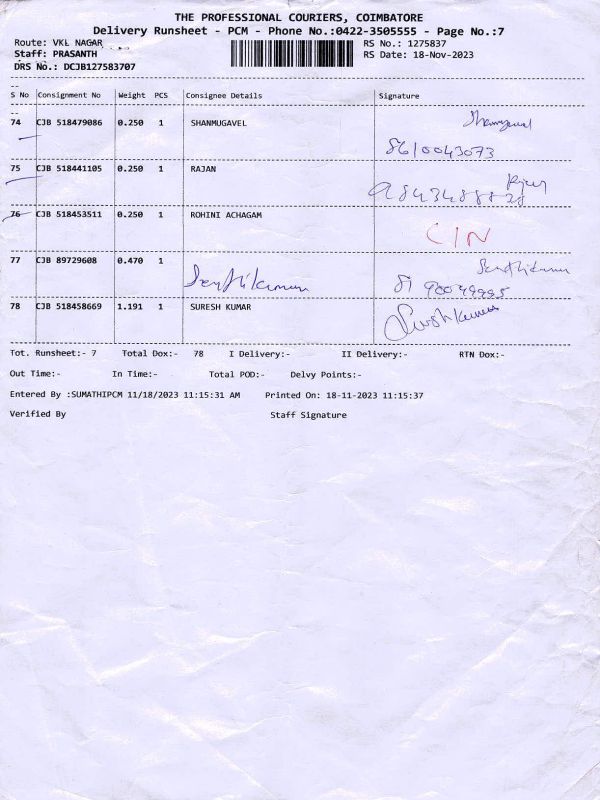 THE PROFESSIONAL COURIERS, COIMBATORE
Delivery Runsheet - PCM - Phone No.:0422-3505555 - Page No.:7
Route: VKL NAGAR
RS No.: 1275837
Staff: PRASANTH
RS Date: 18-Nov-2023
DRS No.: DCJB127583707
S No Consignment No Weight PCS Consignee Details Signature
74 CJB 518479086 0.250 1 SHANMUGAVEL Shanmugavel
8610043073
75 CJB 518441105 0.250 1 RAJAN Rajan
76 CJB 518453511 0.250 1 ROHINI ACHAGAM C/N
77 CJB 89729608 0.470 1 Senthilkumar Senthilkumar
78 CJB 518458669 1.191 1 SURESH KUMAR Sureshkumar
Tot. Runsheet:- 7 Total Dox:- 78 I Delivery:- II Delivery:- RTN Dox:-
Out Time:- In Time:- Total POD:- Delvy Points:-
Entered By :SUMATHIPCM 11/18/2023 11:15:31 AM Printed On: 18-11-2023 11:15:37
Verified By Staff Signature